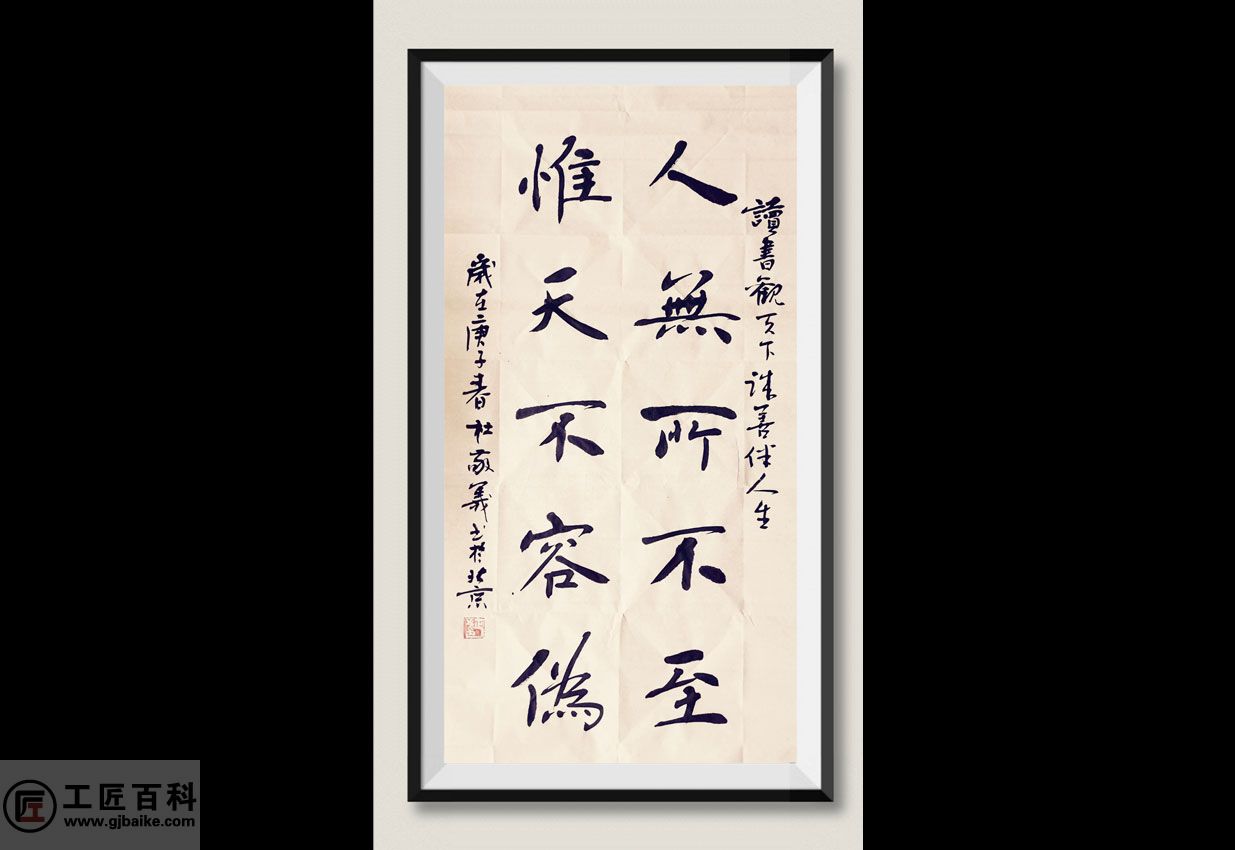 讀書觀天下 善伴人生
人無所不至
惟天不容偽
歲在庚子春 杜敬義书於北京
工匠百科
www.gjbaike.com